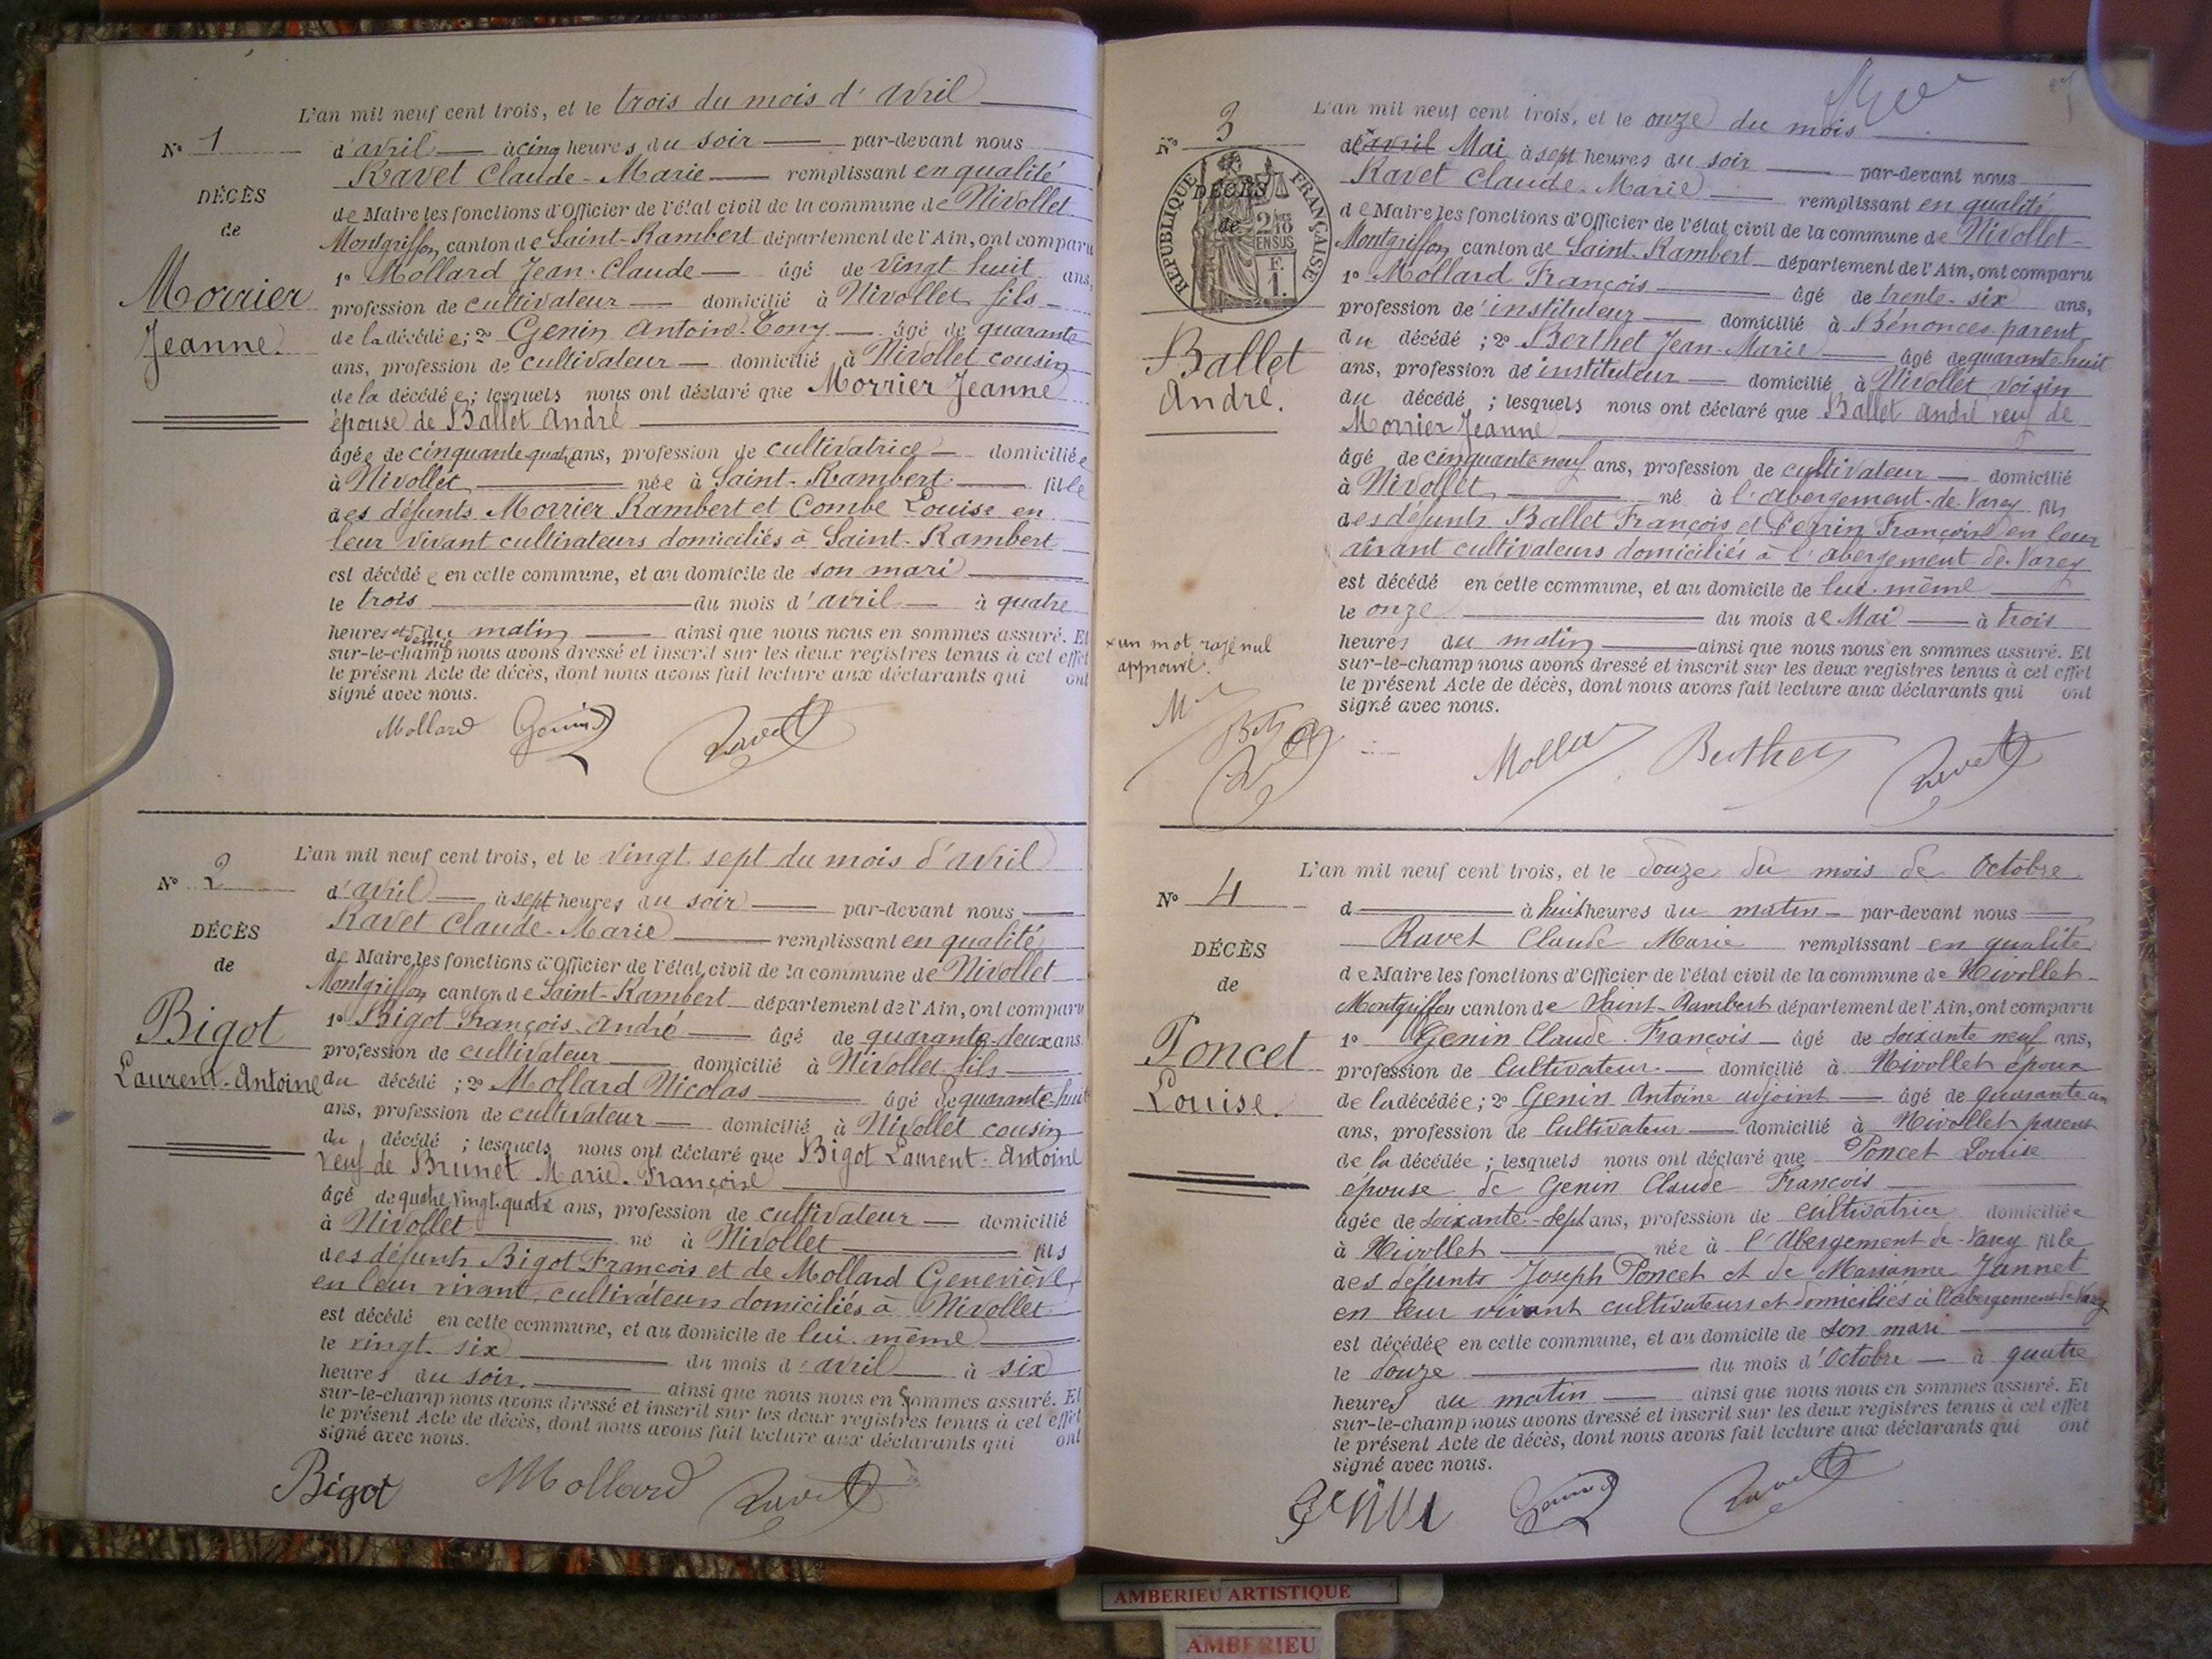 L'an mil neuf cent trois, et le trois du mois d'avril
N° 1
d'avril à cinq heures du soir par-devant nous
Ravet Claude-Marie remplissant en qualité
DÉCÈS
de Maire les fonctions d'Officier de l'état civil de la commune de Nivollet
de
Montgriffon canton de Saint-Rambert département de l'Ain, ont comparu
1° Mollard Jean-Claude âgé de vingt huit ans,
Morrier
profession de cultivateur domicilié à Nivollet fils
Jeanne.
de la décédée; 2° Genin Antoine Tony âgé de quarante
ans, profession de cultivateur domicilié à Nivollet cousin
de la décédée; lesquels nous ont déclaré que Morrier Jeanne
épouse de Ballet André
âgée de cinquante-quatre ans, profession de cultivatrice domiciliée
à Nivollet née à Saint-Rambert fille
des défunts Morrier Rambert et Combe Louise en
leur vivant cultivateurs domiciliés à Saint-Rambert
est décédée en cette commune, et au domicile de son mari
le trois du mois d'avril à quatre
heures et demie du matin ainsi que nous nous en sommes assuré. Et
sur-le-champ nous avons dressé et inscrit sur les deux registres tenus à cet effet
le présent Acte de décès, dont nous avons fait lecture aux déclarants qui ont
signé avec nous.
Mollard Genin Ravet
L'an mil neuf cent trois, et le vingt sept du mois d'avril
N° 2
d'avril à sept heures du soir par-devant nous
Ravet Claude-Marie remplissant en qualité
DÉCÈS
de Maire les fonctions d'Officier de l'état civil de la commune de Nivollet
de
Montgriffon canton de Saint-Rambert département de l'Ain, ont comparu
1° Bigot François-André âgé de quarante-deux ans
Bigot
profession de cultivateur domicilié à Nivollet fils
Laurent-Antoine
du décédé; 2° Mollard Nicolas âgé de quarante-huit
ans, profession de cultivateur domicilié à Nivollet cousin
du décédé; lesquels nous ont déclaré que Bigot Laurent-Antoine
veuf de Brunet Marie-Françoise
âgé de quatre vingt-quatre ans, profession de cultivateur domicilié
à Nivollet né à Nivollet fils
des défunts Bigot François et de Mollard Geneviève,
en leur vivant cultivateurs domiciliés à Nivollet
est décédé en cette commune, et au domicile de lui-même
le vingt six du mois d'avril à six
heures du soir. ainsi que nous nous en sommes assuré. Et
sur-le-champ nous avons dressé et inscrit sur les deux registres tenus à cet effet
le présent Acte de décès, dont nous avons fait lecture aux déclarants qui ont
signé avec nous.
Bigot Mollard Ravet
L'an mil neuf cent trois, et le onze du mois
N° 3
de avril Mai à sept heures du soir par-devant nous
Ravet Claude-Marie remplissant en qualité
DÉCÈS
de
RÉPUBLIQUE FRANÇAISE
2/10 EN SUS
F. 1.
de Maire les fonctions d'Officier de l'état civil de la commune de Nivollet-
Montgriffon canton de Saint-Rambert département de l'Ain, ont comparu
1° Mollard François âgé de trente-six ans,
profession de instituteur domicilié à Bénonces parent
Ballet
André.
du décédé; 2° Berthet Jean-Marie âgé de quarante-huit
ans, profession de instituteur domicilié à Nivollet voisin
du décédé; lesquels nous ont déclaré que Ballet André veuf de
Morrier Jeanne
âgé de cinquante neuf ans, profession de cultivateur domicilié
à Nivollet né à l'abergement-de-Varey fils
des défunts Ballet François et Perrin Françoise en leur
vivant cultivateurs domiciliés à l'abergement de Varey
est décédé en cette commune, et au domicile de lui-même
le onze du mois de Mai à trois
heures du matin ainsi que nous nous en sommes assuré. Et
x un mot rayé nul
approuvé.
sur-le-champ nous avons dressé et inscrit sur les deux registres tenus à cet effet
le présent Acte de décès, dont nous avons fait lecture aux déclarants qui ont
signé avec nous.
Mollard Berthet Ravet
L'an mil neuf cent trois, et le douze du mois de Octobre
N° 4
d à huit heures du matin par-devant nous
Ravet Claude Marie remplissant en qualité
DÉCÈS
de Maire les fonctions d'Officier de l'état civil de la commune de Nivollet-
de
Montgriffon canton de Saint-Rambert département de l'Ain, ont comparu
1° Genin Claude-François âgé de soixante neuf ans,
Poncet
profession de Cultivateur domicilié à Nivollet époux
Louise.
de la décédée; 2° Genin Antoine adjoint âgé de quarante an
ans, profession de Cultivateur domicilié à Nivollet parent
de la décédée; lesquels nous ont déclaré que Poncet Louise
épouse de Genin Claude François
âgée de soixante-sept ans, profession de cultivatrice domiciliée
à Nivollet née à l'Abergement de-Varey fille
des défunts Joseph Poncet et de Marianne Jannet
en leur vivant cultivateurs et domiciliés à l'abergement de Varey
est décédée en cette commune, et au domicile de son mari
le douze du mois d'Octobre à quatre
heures du matin ainsi que nous nous en sommes assuré. Et
sur-le-champ nous avons dressé et inscrit sur les deux registres tenus à cet effet
le présent Acte de décès, dont nous avons fait lecture aux déclarants qui ont
signé avec nous.
Genin Genin Ravet
AMBERIEU ARTISTIQUE
AMBERIEU